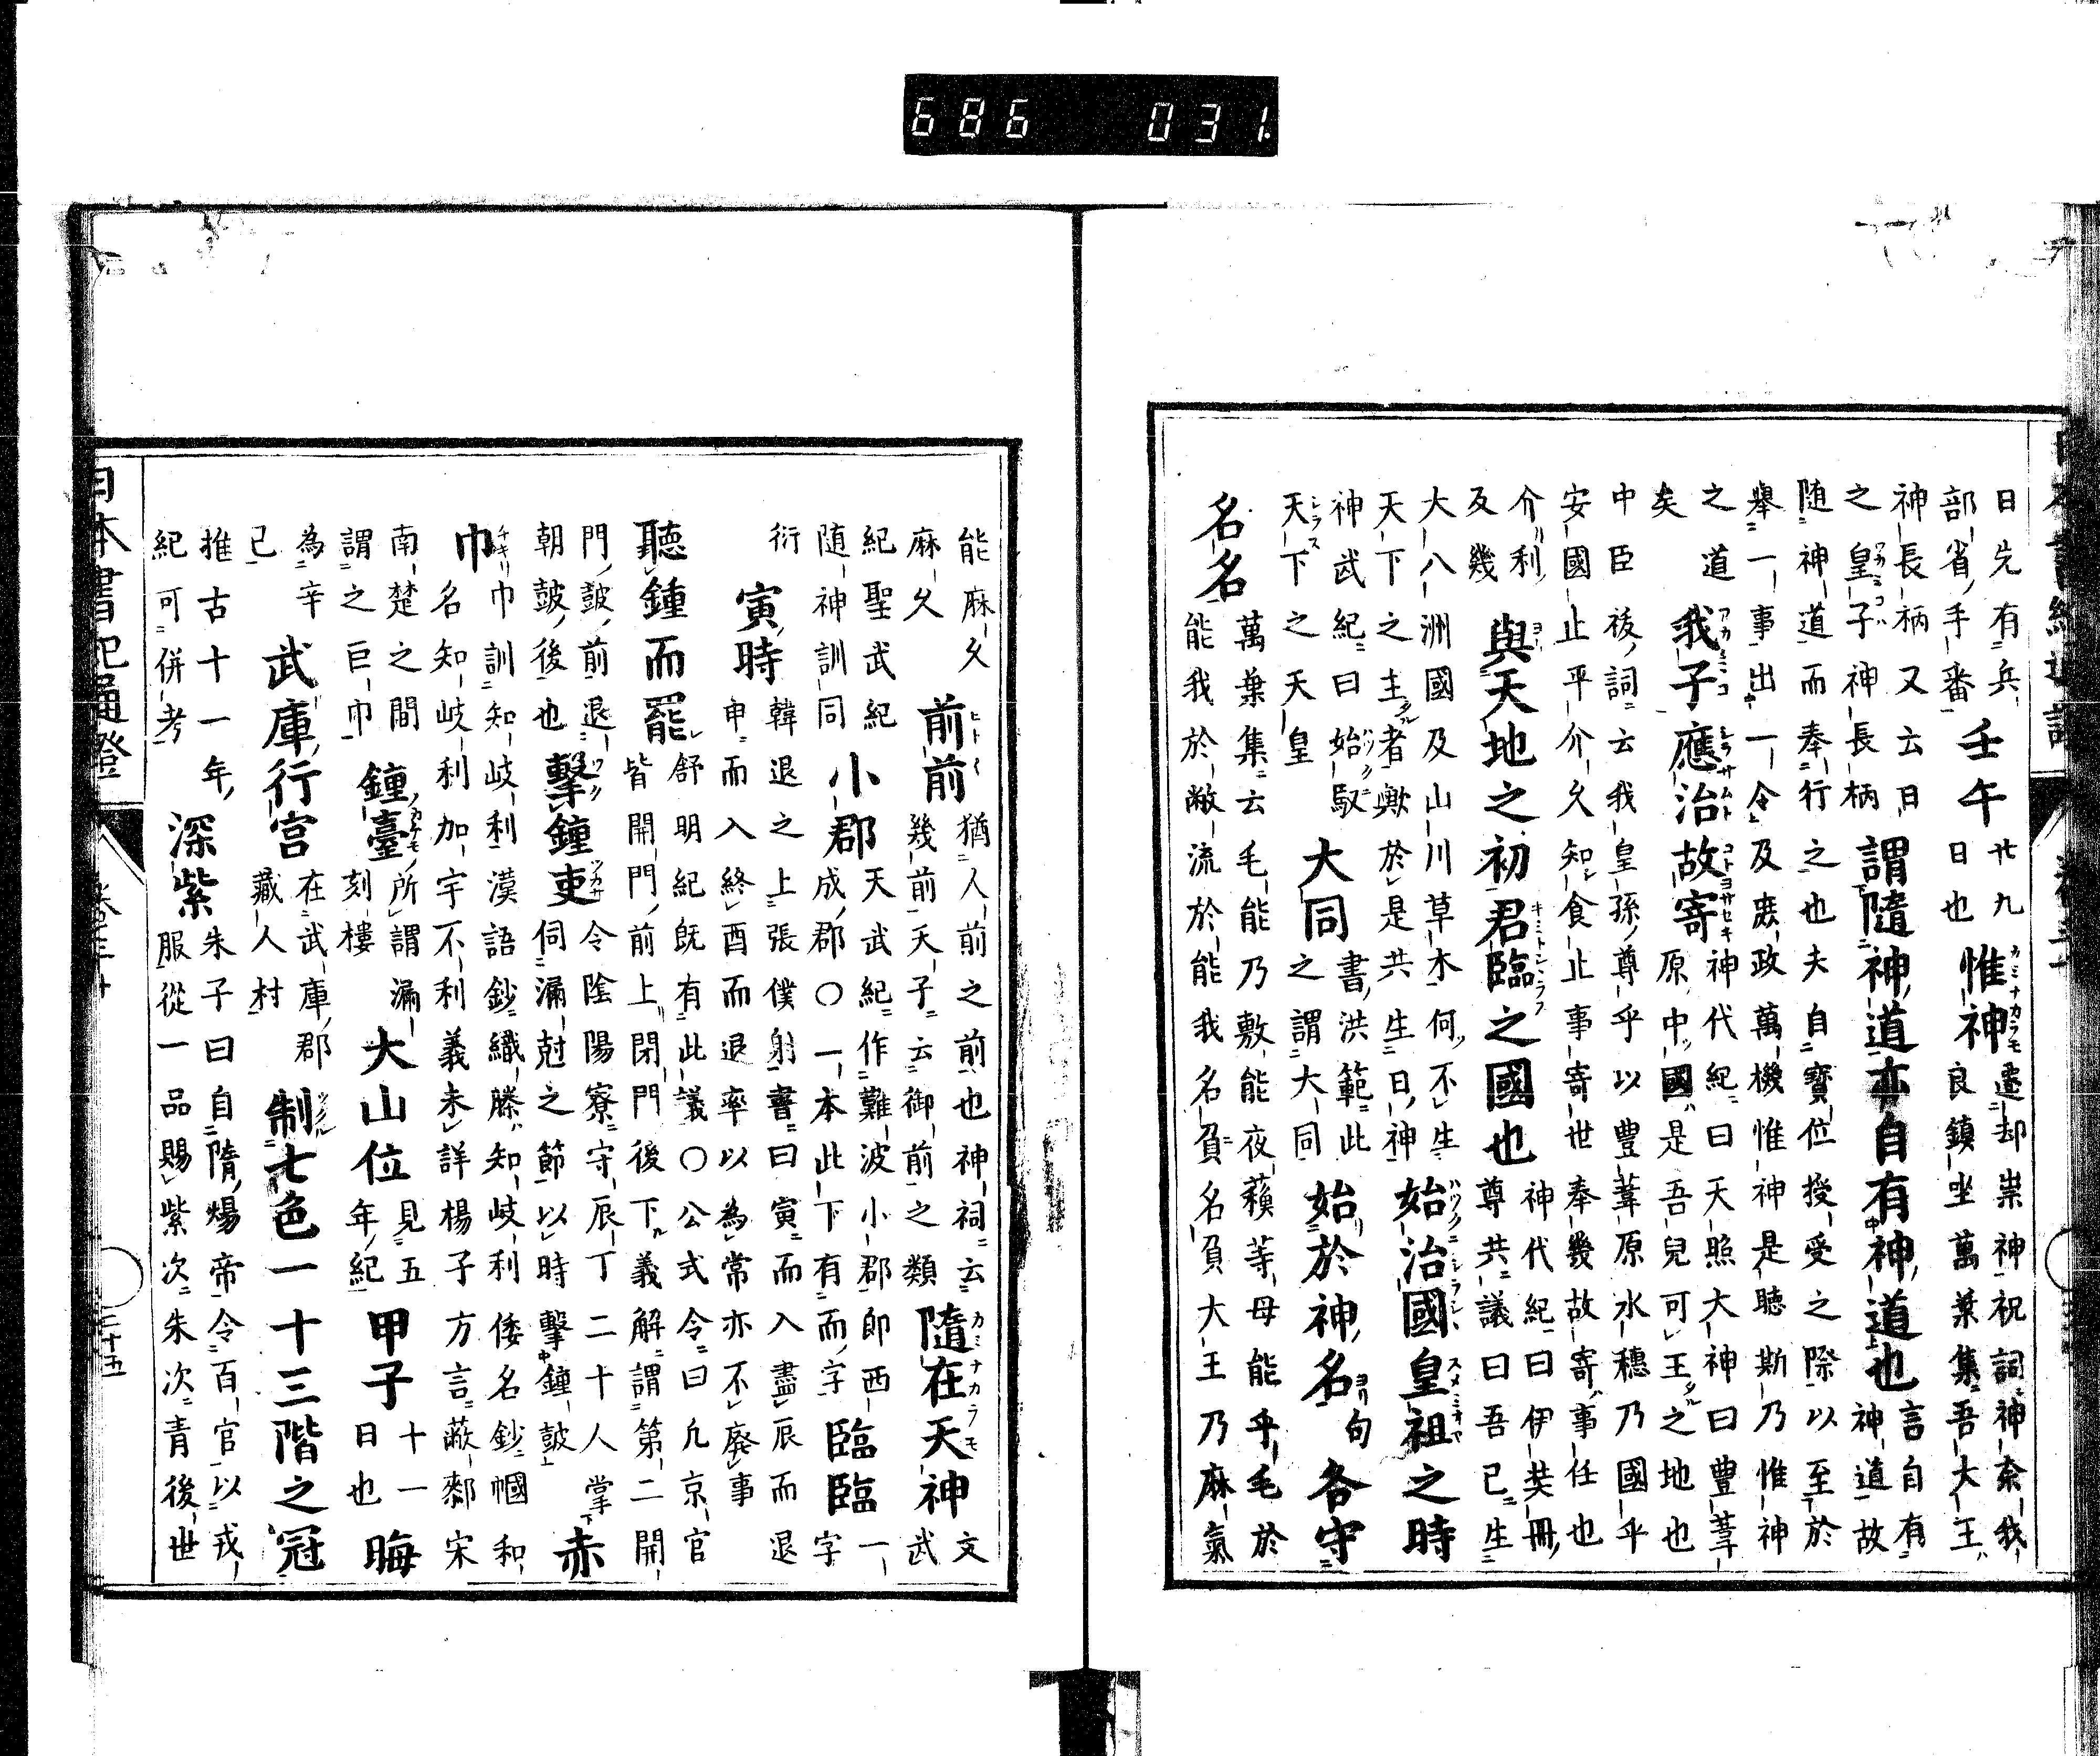 686 031
日先有兵
部省手番
壬午
廿九
日也
惟神
遷却崇神祝詞神奈我
良鎮坐萬葉集吾大王
神長柄又云日
之皇子神長柄
謂隨神道亦自有神道也
言自有
神道故
隨神道而奉行之也夫自寶位授受之際以至於
舉一事出一令及庶政萬機惟神是聽斯乃惟神
之道
矣
我子應治故寄
神代紀曰天照大神曰豐葦
原中國是吾兒可王之地也
中臣後詞云我皇孫尊乎以豐葦原水穗乃國乎
安國止平介久知食止事寄世奉幾故寄事任也
介利
及幾
與天地之初君臨之國也
神代紀曰伊奘冊
尊共議曰吾已生
大八洲國及山川草木何不生
天下之主者歟於是共生日神
始治國皇祖之時
神武紀曰始馭
天下之天皇
大同
書洪範此
之謂大同
始於神名
句
各守
名名
萬葉集云毛能乃敷能夜蘓等母能乎毛於
能我於敝流於能我名負名負大王乃麻氣
能麻久
麻久
前前
猶人前之前也神祠云
幾前天子云御前之類
隨在天神
文
武
紀聖武紀
隨神訓同
小郡
天武紀作難波小郡即西
成郡〇一本此下有而字
臨臨
一
字
衍
寅時
韓退之上張僕射書曰寅而入盡辰而退
申而入終酉而退率以為常亦不廢事
聽鍾而罷
舒明紀既有此議〇公式令曰凡京官
皆開門前上閉門後下義解謂第二開
門皷前退
朝皷後也
擊鍾吏
令陰陽寮守辰丁二十人掌
伺漏尅之節以時擊鍾皷
赤
巾
巾訓知岐利漢語鈔織縢知岐利倭名鈔幗和
名知岐利加宇不利義未詳楊子方言蔽鄡宋
南楚之間
謂之巨巾
鐘臺
所謂漏
刻樓
大山位
見五
年紀
甲子
十一
日也
晦
為辛
已
武庫行宮
在武庫郡
藏人村
制七色一十三階之冠
推古十一年
紀可併考
深紫
朱子曰自隋煬帝令百官以戎
服從一品賜紫次朱次青後世
日本書紀通證
三十五